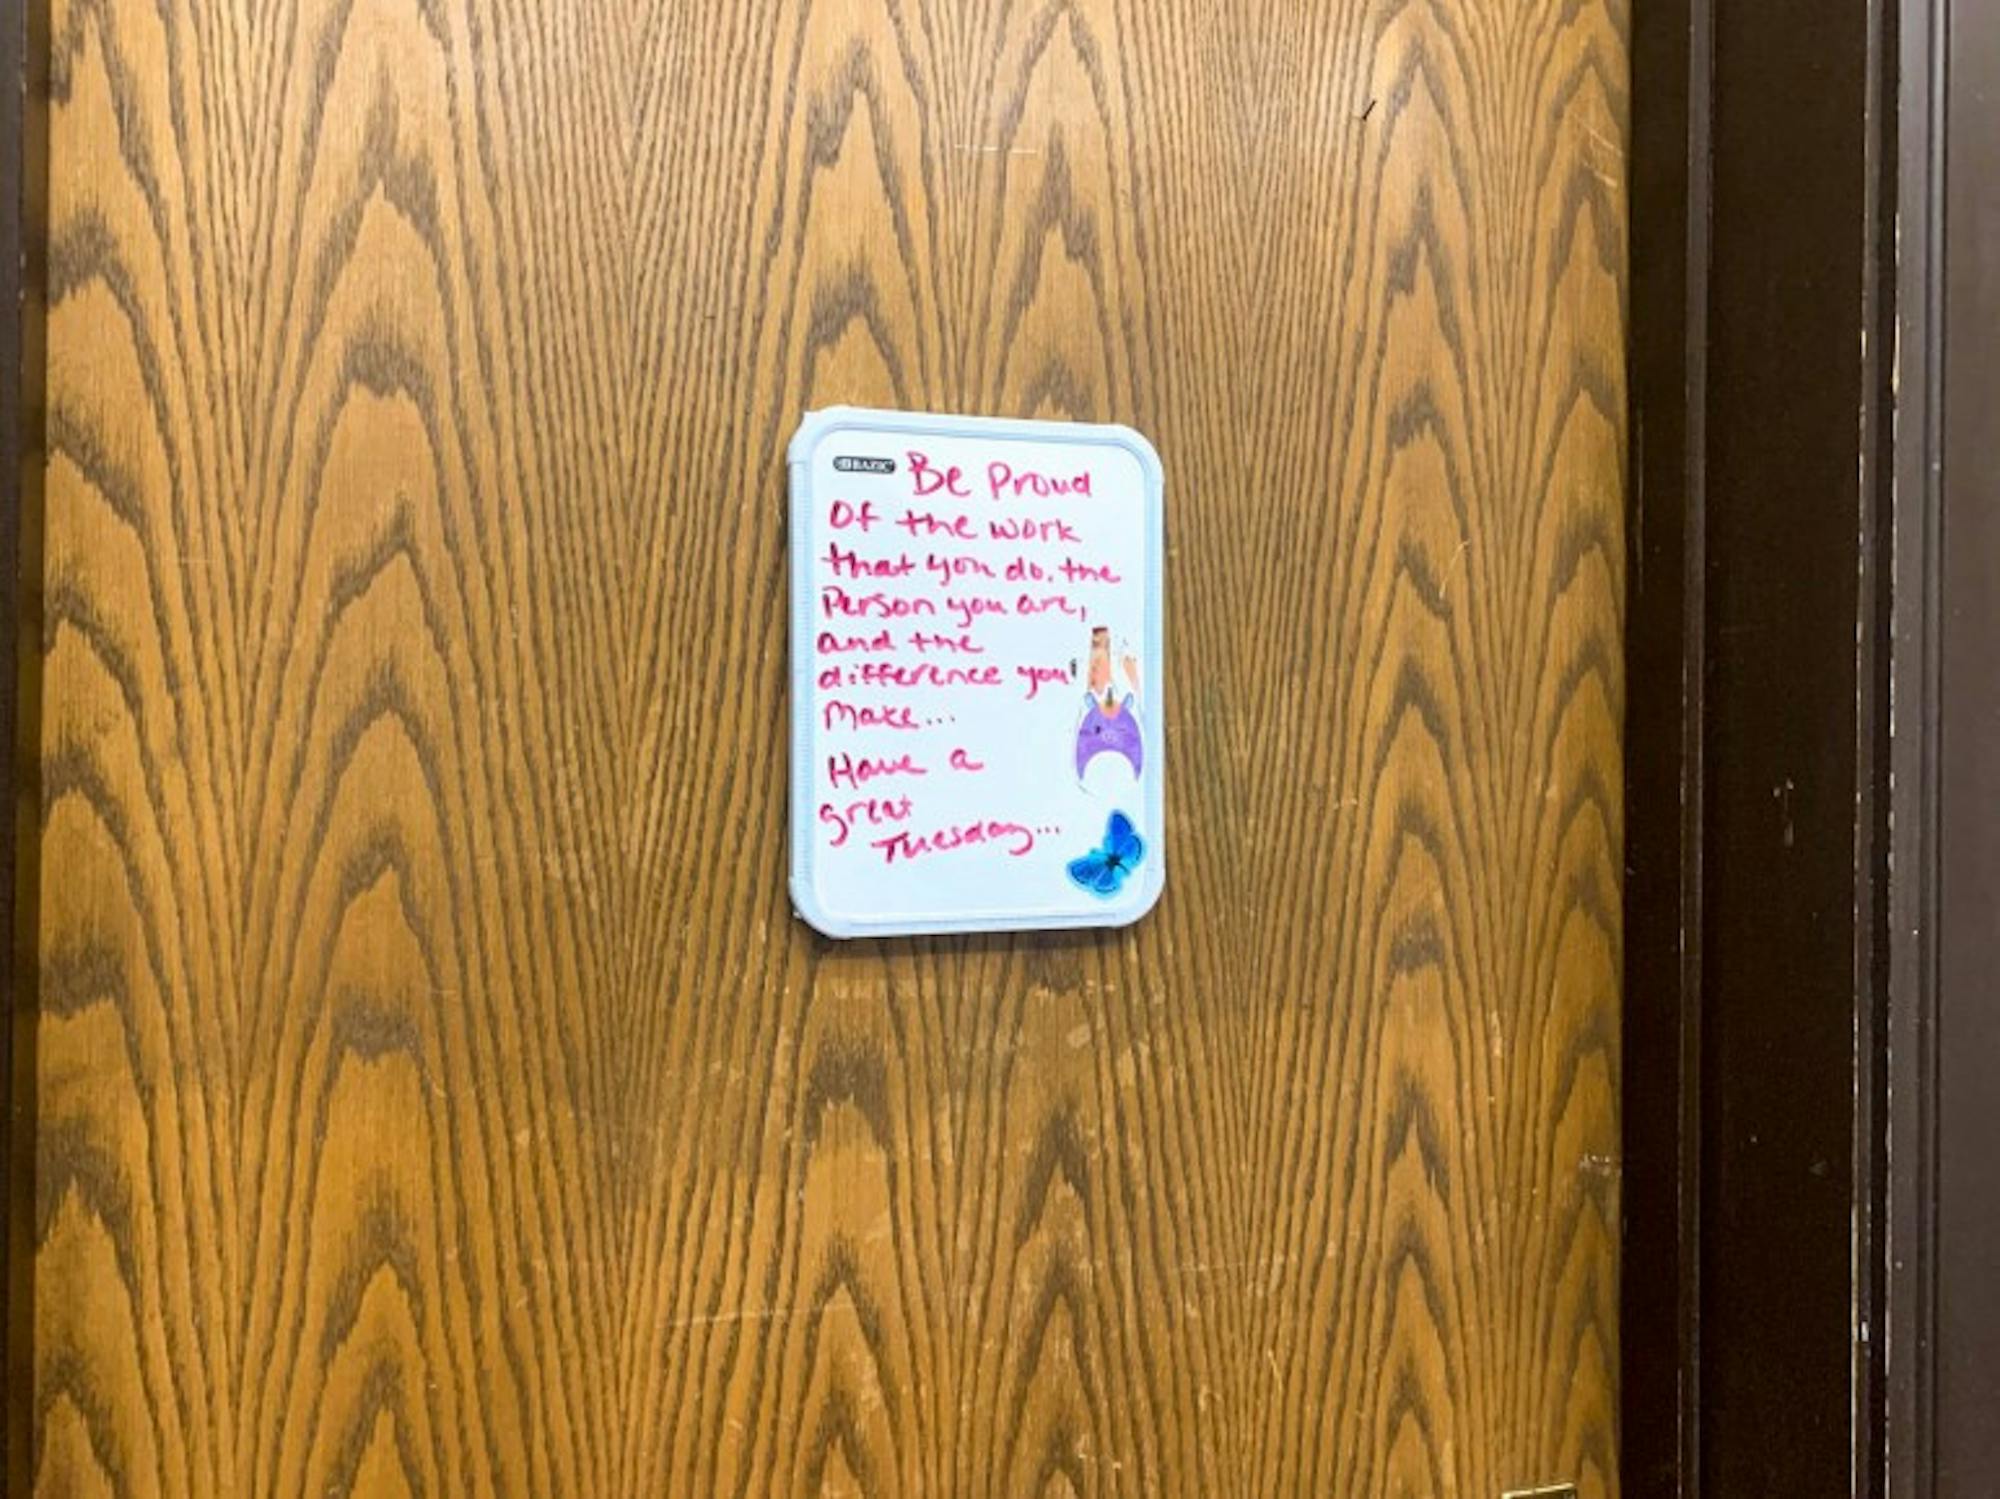 BAZIC Be Proud
Of the work
that you do, the
Person you are,
and the
difference you
Make...
Have a
great
Tuesday...